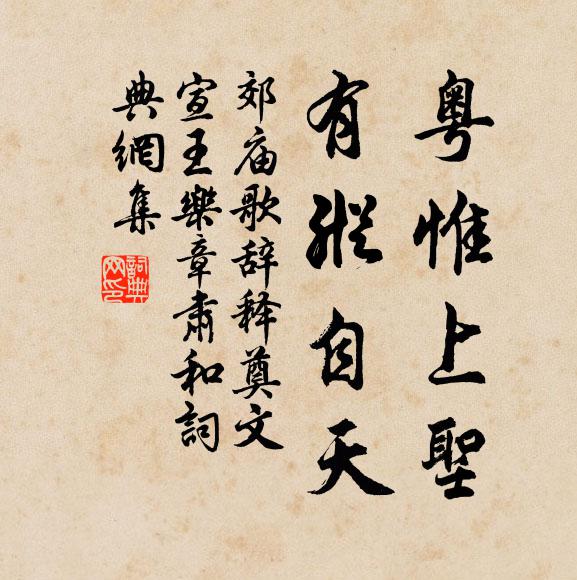 粤惟上聖
有縱自天
郊庙歌辞释奠文
宣王樂章肅和詞
典網集
詞典網印